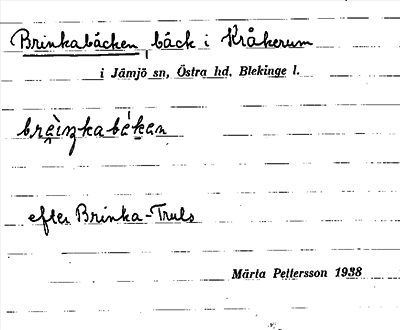 Brinkabäcken, bäck i Kråkerum
i Jämjö sn, Östra hd, Blekinge l.
brèi̯ŋkabékən
efter Brinka-Truls
Märta Pettersson 1938